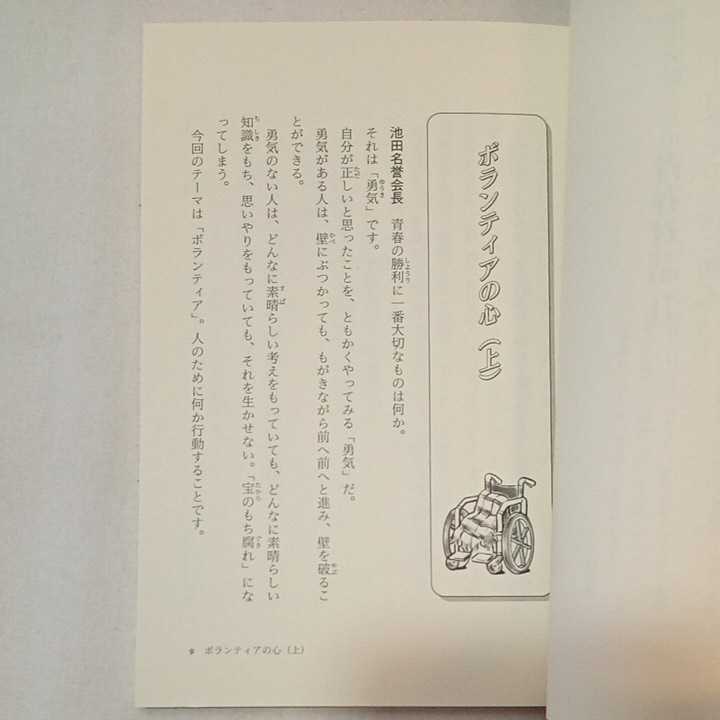 ボランティアの心（上）
池田名誉会長　青春の勝利に一番大切なものは何か。
それは「勇気」です。
自分が正しいと思ったことを、ともかくやってみる「勇気」だ。
勇気がある人は、壁にぶつかっても、もがきながら前へ前へと進み、壁を破るこ
とができる。
勇気のない人は、どんなに素晴らしい考えをもっていても、どんなに素晴らしい
知識をもち、思いやりをもっていても、それを生かせない。「宝のもち腐れ」にな
ってしまう。
今回のテーマは「ボランティア」。人のために何か行動することです。
9　ボランティアの心（上）